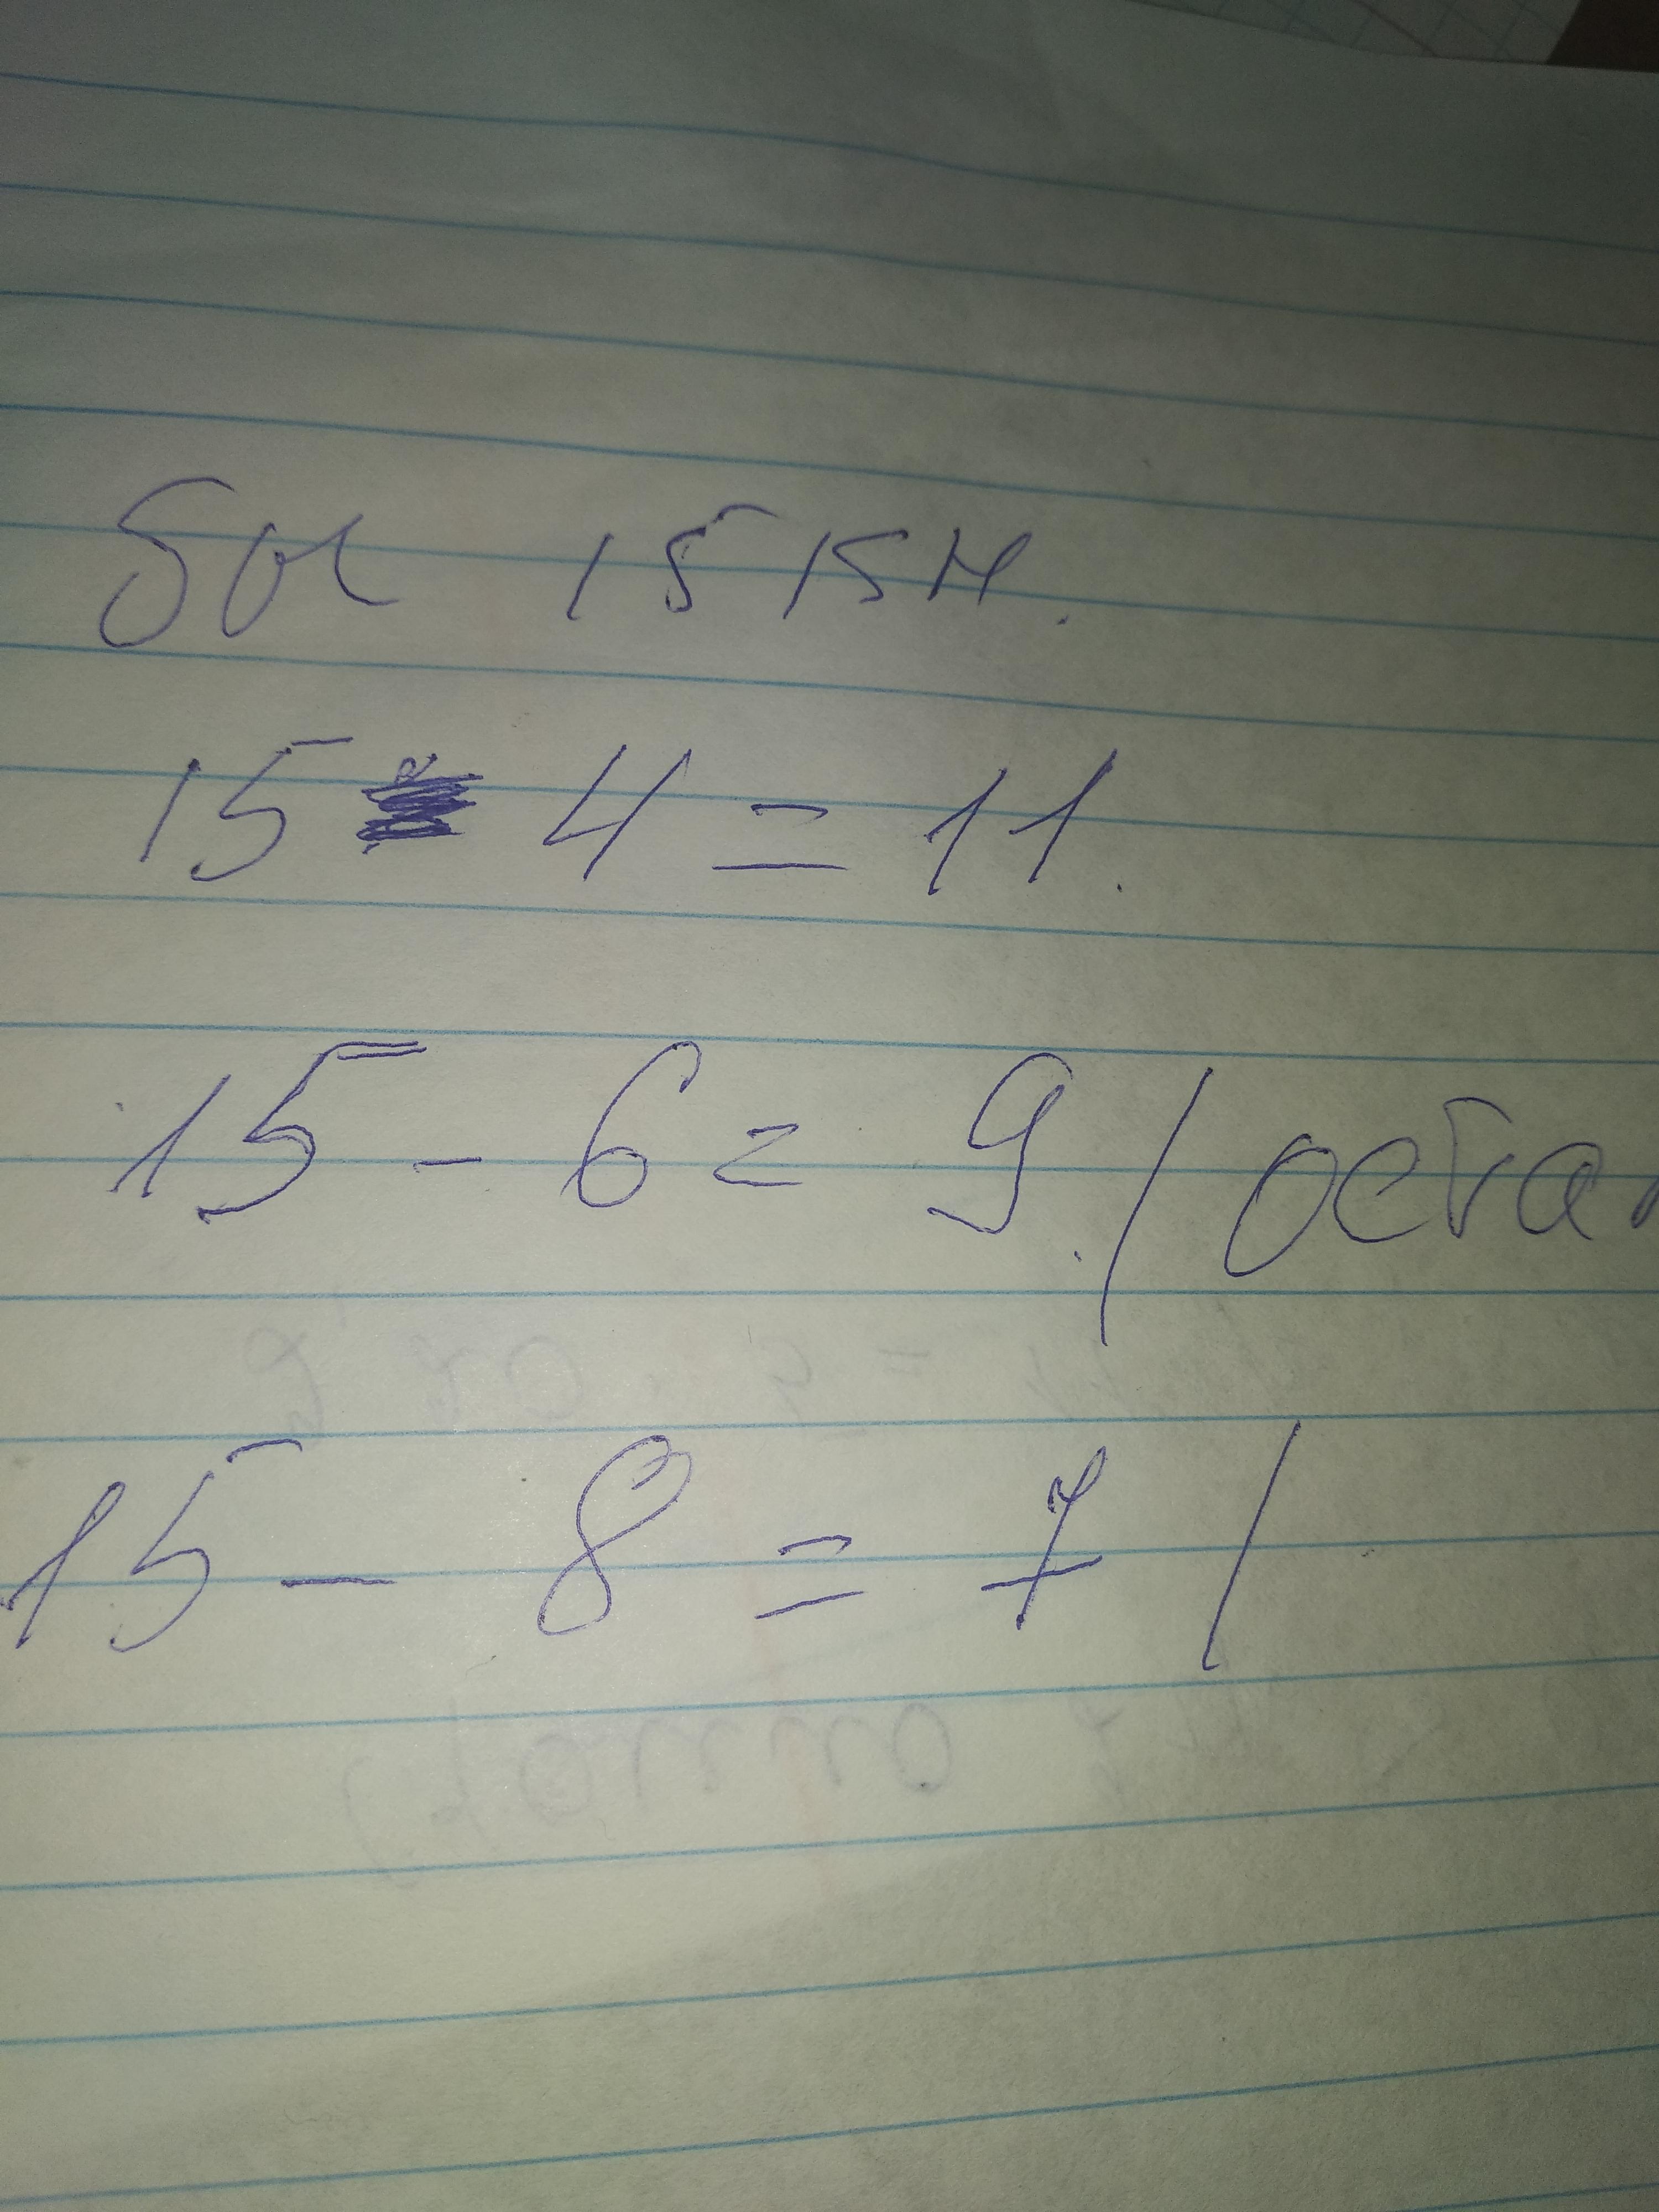 15 15 н.
15 4 = 11.
15 - 6 = 9. / оста
15 - 8 = 7 /